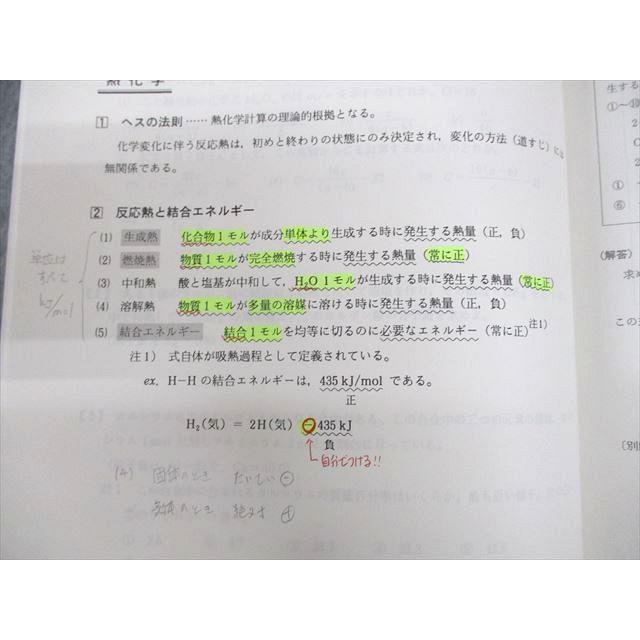 熱化学
1 ヘスの法則 …… 熱化学計算の理論的根拠となる。
化学変化に伴う反応熱は，初めと終わりの状態にのみ決定され，変化の方法（道すじ）には
無関係である。
2 反応熱と結合エネルギー
(1) 生成熱 化合物1モルが成分単体より生成する時に発生する熱量（正，負）
(2) 燃焼熱 物質1モルが完全燃焼する時に発生する熱量（常に正）
(3) 中和熱 酸と塩基が中和して，H₂O 1モルが生成する時に発生する熱量（常に正）
(4) 溶解熱 物質1モルが多量の溶媒に溶ける時に発生する熱量（正，負）
(5) 結合エネルギー 結合1モルを均等に切るのに必要なエネルギー（常に正）注1)
単位は
すべて
kJ/mol
注1) 式自体が吸熱過程として定義されている。
ex. H−H の結合エネルギーは，435 kJ/mol である。
正
H₂(気) = 2H(気) − 435 kJ
負
自分でつける!!
(4) 固体のとき たいてい ⊖
気体のとき 絶対 ⊕
生する
①～④
2
C
2
①
⑥
(解答)
求め
この
〔別